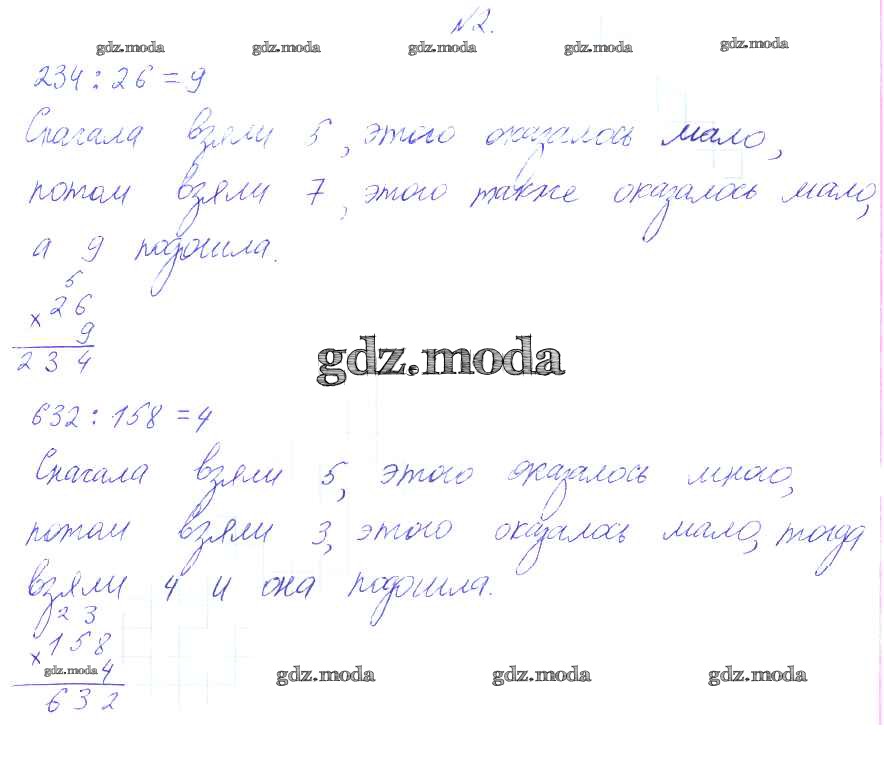 №2.
gdz.moda gdz.moda gdz.moda gdz.moda gdz.moda
234 : 26 = 9
Сначала взяли 5, этого оказалось мало,
потом взяли 7, этого также оказалось мало,
а 9 подошла.
5
× 26
9
234
gdz.moda
632 : 158 = 4
Сначала взяли 5, этого оказалось много,
потом взяли 3, этого оказалось мало, тогда
взяли 4 и она подошла.
2 3
× 158
gdz.moda 4
gdz.moda gdz.moda gdz.moda
632